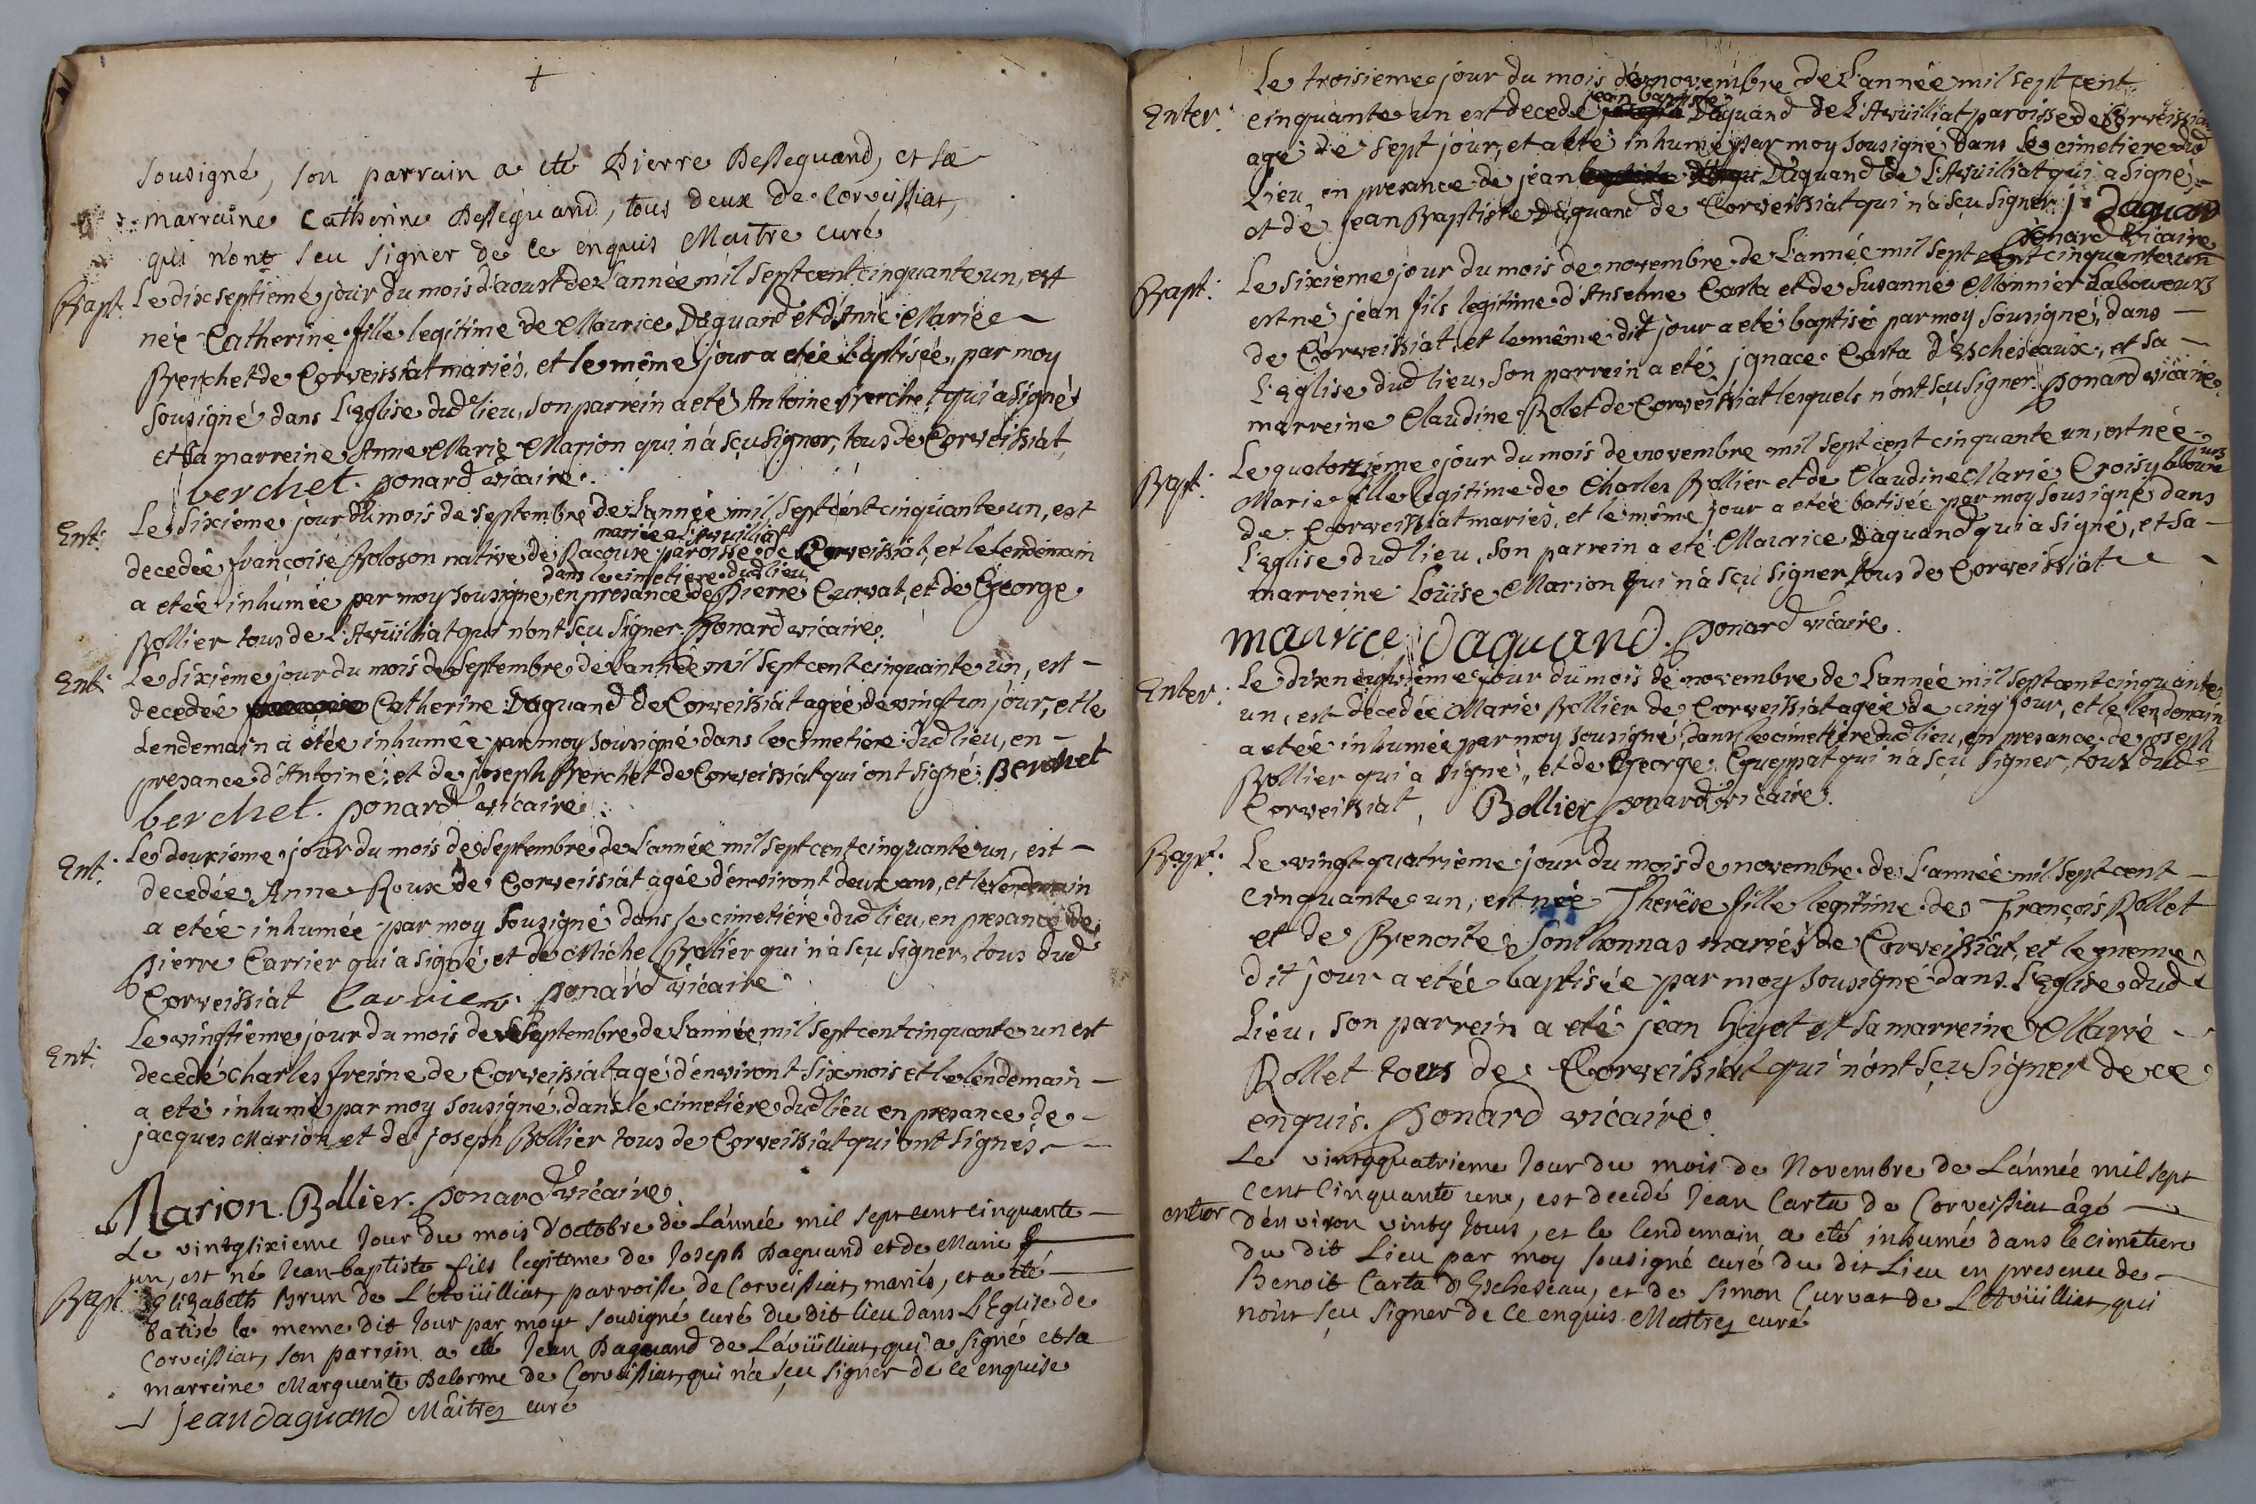 +
sousigné, son parrain a été Pierre Bessequand, et sa
marraine Catherine Bessequand, tous deux de Corveissiat,
qui n'ont seu signer de ce enquis Maitre curé
Bapt. Le dix septieme jour du mois d'aoust de L'année mil sept cent cinquante un, est
née Catherine fille legitime de Maurice Daguand et d'Anne Marie
Berchet de Corveissiat mariés, et le même jour a etée baptisée, par moy
sousigné dans L'Eglise dud lieu, son parrein a eté Antoine Berchet qui a signé
et sa marreine Anne Marie Marion qui n'a sçu signer, tous de Corveissiat,
berchet. ponard vicaire.
Ent: Le sixieme jour du mois de septembre de L'année mil sept cent cinquante un, est
mariée a L'Avuilliat
decedée françoise Boloson native de Racouse paroisse de Corveissiat, et le lendemain
dans le cimetiere dud lieu
a etée inhumée par moy sousigné, en presance de Pierre Curvat, et de George
Bollier tous de L'Avüilliat qui n'ont sçu signer. ponard vicaire.
Ent: Le sixieme jour du mois de septembre de L'année mil sept cent cinquante un, est
decedée Catherine Daguand de Corveissiat agée de vingt un jour, et le
Lendemain a étée inhumée par moy sousigné dans le cimetiere dud lieu, en
presance d'Antoine, et de joseph Berchet de Corveissiat qui ont signé, Berchet
berchet. ponard vicaire.
Ent: Le douxieme jour du mois de septembre de L'année mil sept cent cinquante un, est
decedée Anne Roux de Corveissiat agée d'environt deux ans, et le lendemain
a etée inhumée par moy sousigné dans le cimetiére dud lieu, en presance de
pierre Carrier qui a signé et de Michel Bollier qui n'a sçu signer, tous dud
Corveissiat Carrier. ponard vicaire
Ent: Le vingtieme jour du mois de septembre de L'année mil sept cent cinquante un est
decedé Charles freisne de Corveissiat agé d'environt six mois et le lendemain
a eté inhumé par moy sousigné dans le cimetiére dud lieu en presance de
jacques Marion et de joseph Bollier tous de Corveissiat qui ont signés.
Marion. Bollier. ponard vicaire.
Le vintgsixieme Jour du mois d'octobre de L'année mil sept cent cinquante
un, est né Jean-baptiste fils legitime de Joseph Daguand et de Marie
Bapt. Elizabeth Brun de L'Avüilliat, parroisse de Corveissiat, mariés, et a été
batisé le meme dit Jour par moy sousigné curé du dit lieu dans L'Eglise de
Corveissiat, son parrein a été Jean Daguand de L'avüilliat, qui a signé et sa
marreine Marguerite Delorme de Corveissiat, qui n'a sçu signer de ce enquise
Jean daguand Maitre curé
Le troisieme jour du mois de novembre de L'année mil sept cent
jean baptiste
Enter: cinquante un est decede Daguand de L'Avüilliat paroisse de Corveissiat
agé de sept jour, et a eté inhumé par moy sousigné dans le cimetiere dud
Lieu, en presance de jean Daguand de L'Avüilliat qui a signé,
et de jean Baptiste Daguand de Corveissiat qui n'a sçu signer. j. Daguand
ponard vicaire
Bapt: Le sixieme jour du mois de novembre de L'année mil sept cent cinquante un
est né jean fils legitime d'Anselme Carta et de Susanne Monnier Laboureurs
de Corveissiat, et le même dit jour a eté baptisé par moy sousigné, dans
L'Eglise dud lieu, son parrein a eté jgnace Carta d'Escheseaux, et sa
marreine Claudine Rolet de Corveissiat lesquels n'ont sçu signer. ponard vicaire.
Bapt: Le quatorzieme jour du mois de novembre mil sept cent cinquante un, est née
Marie fille legitime de Charles Bollier et de Claudine Marie Croisy laboureurs
de Corveissiat mariés, et le même jour a etée batisée par moy sousigné dans
L'Eglise dud lieu, son parrein a eté Maurice Daguand qui a signé, et sa
marreine Loüise Marion qui n'a sçu signer tous de Corveissiat
maurice daguand. ponard vicaire.
Enter: Le dixneufvieme jour du mois de novembre de L'année mil sept cent cinquante
un, est decedée Marie Bollier de Corveissiat agée de cinq jour, et le lendemain
a etée inhumée par moy sousigné, dans le cimetiére dud lieu, en presance de joseph
Bollier qui a signé, et de George Gueppat qui n'a sçu signer, tous dud
Corveissiat, Bollier ponard vicaire.
Bapt: Le vingt quatrieme jour du mois de novembre de L'année mil sept cent
cinquante un, est née Therése fille legitime de François Rollet
et de Benoite Sonthonnas mariés de Corveissiat, et le même
dit jour a etée baptisée par moy sousigné dans L'Eglise dud
Lieu, son parrein a eté jean Huyet et sa marreine Marie
Rollet tous de Corveissiat qui n'ont sçu signer de ce
enquis. ponard vicaire.
Le vintgquatrieme Jour du mois de Novembre de L'année mil sept
cent cinquante un, est decédé Jean Carta de Corveissiat âgé
enter d'environ vintg Jours, et le lendemain a été inhumé dans le cimetiere
du dit Lieu par moy sousigné curé du dit Lieu en presence de
Benoit Carta d'Escheseau, et de Simon Curvat de L'Avüilliat, qui
n'ont sçu signer de ce enquis Maitre curé